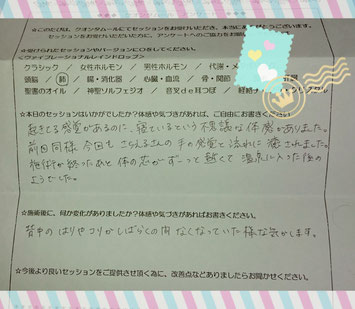 ☆このたびは、クオンタムールにてセッションをお受けいただき、本当にありがとうございます。
セッションをお受けいただいた方に、アンケートへのご協力をお願い
☆受けられたセッションやバージョンに○をしてください。
<ヴァイブレーショナルレインドロップ>
クラシック / 女性ホルモン / 男性ホルモン / 代謝・メ
頭脳 / 肺 / 腸・消化器 / 心臓・血流 / 骨・関節
聖書のオイル / 神聖ソルフェジオ / 音叉de耳つぼ / 経絡チ
☆本日のセッションはいかがでしたか?体感や気づきがあれば、ご自由にお書きください
起きてる感覚があるのに、寝ているという不思議な体感がありました。
前回同様 今回も こららさんの 手の感覚と 流れに 癒されました。
施術が終ったあと 体の芯が ずーっと 熱くて 温泉に入った後の
ようでした。
☆施術後に、何か変化がありましたか?体感や気づきがあればお書きください。
背中の はりやコリが しばらくの間 なくなっていた 様な気がします。
☆今後より良いセッションをご提供させて頂く為に、改善点などありましたらお聞かせください。